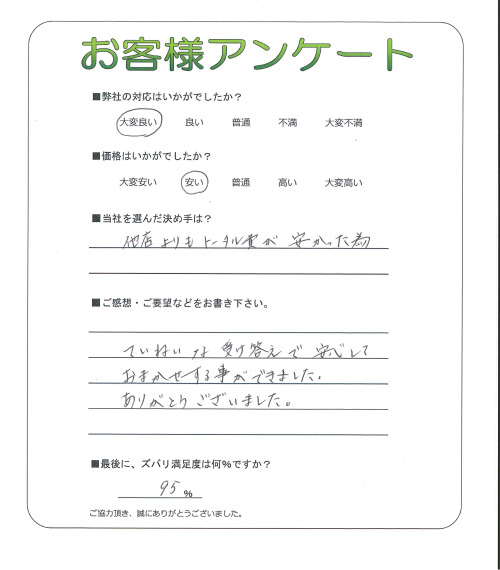 お客様アンケート
■弊社の対応はいかがでしたか？
大変良い 良い 普通 不満 大変不満
■価格はいかがでしたか？
大変安い 安い 普通 高い 大変高い
■当社を選んだ決め手は？
他店よりもトータル費が安かった為
■ご感想・ご要望などをお書き下さい。
ていねいな受け答えで安心して
おまかせする事ができました.
ありがとうございました。
■最後に、ズバリ満足度は何%ですか？
95 %
ご協力頂き、誠にありがとうございました。